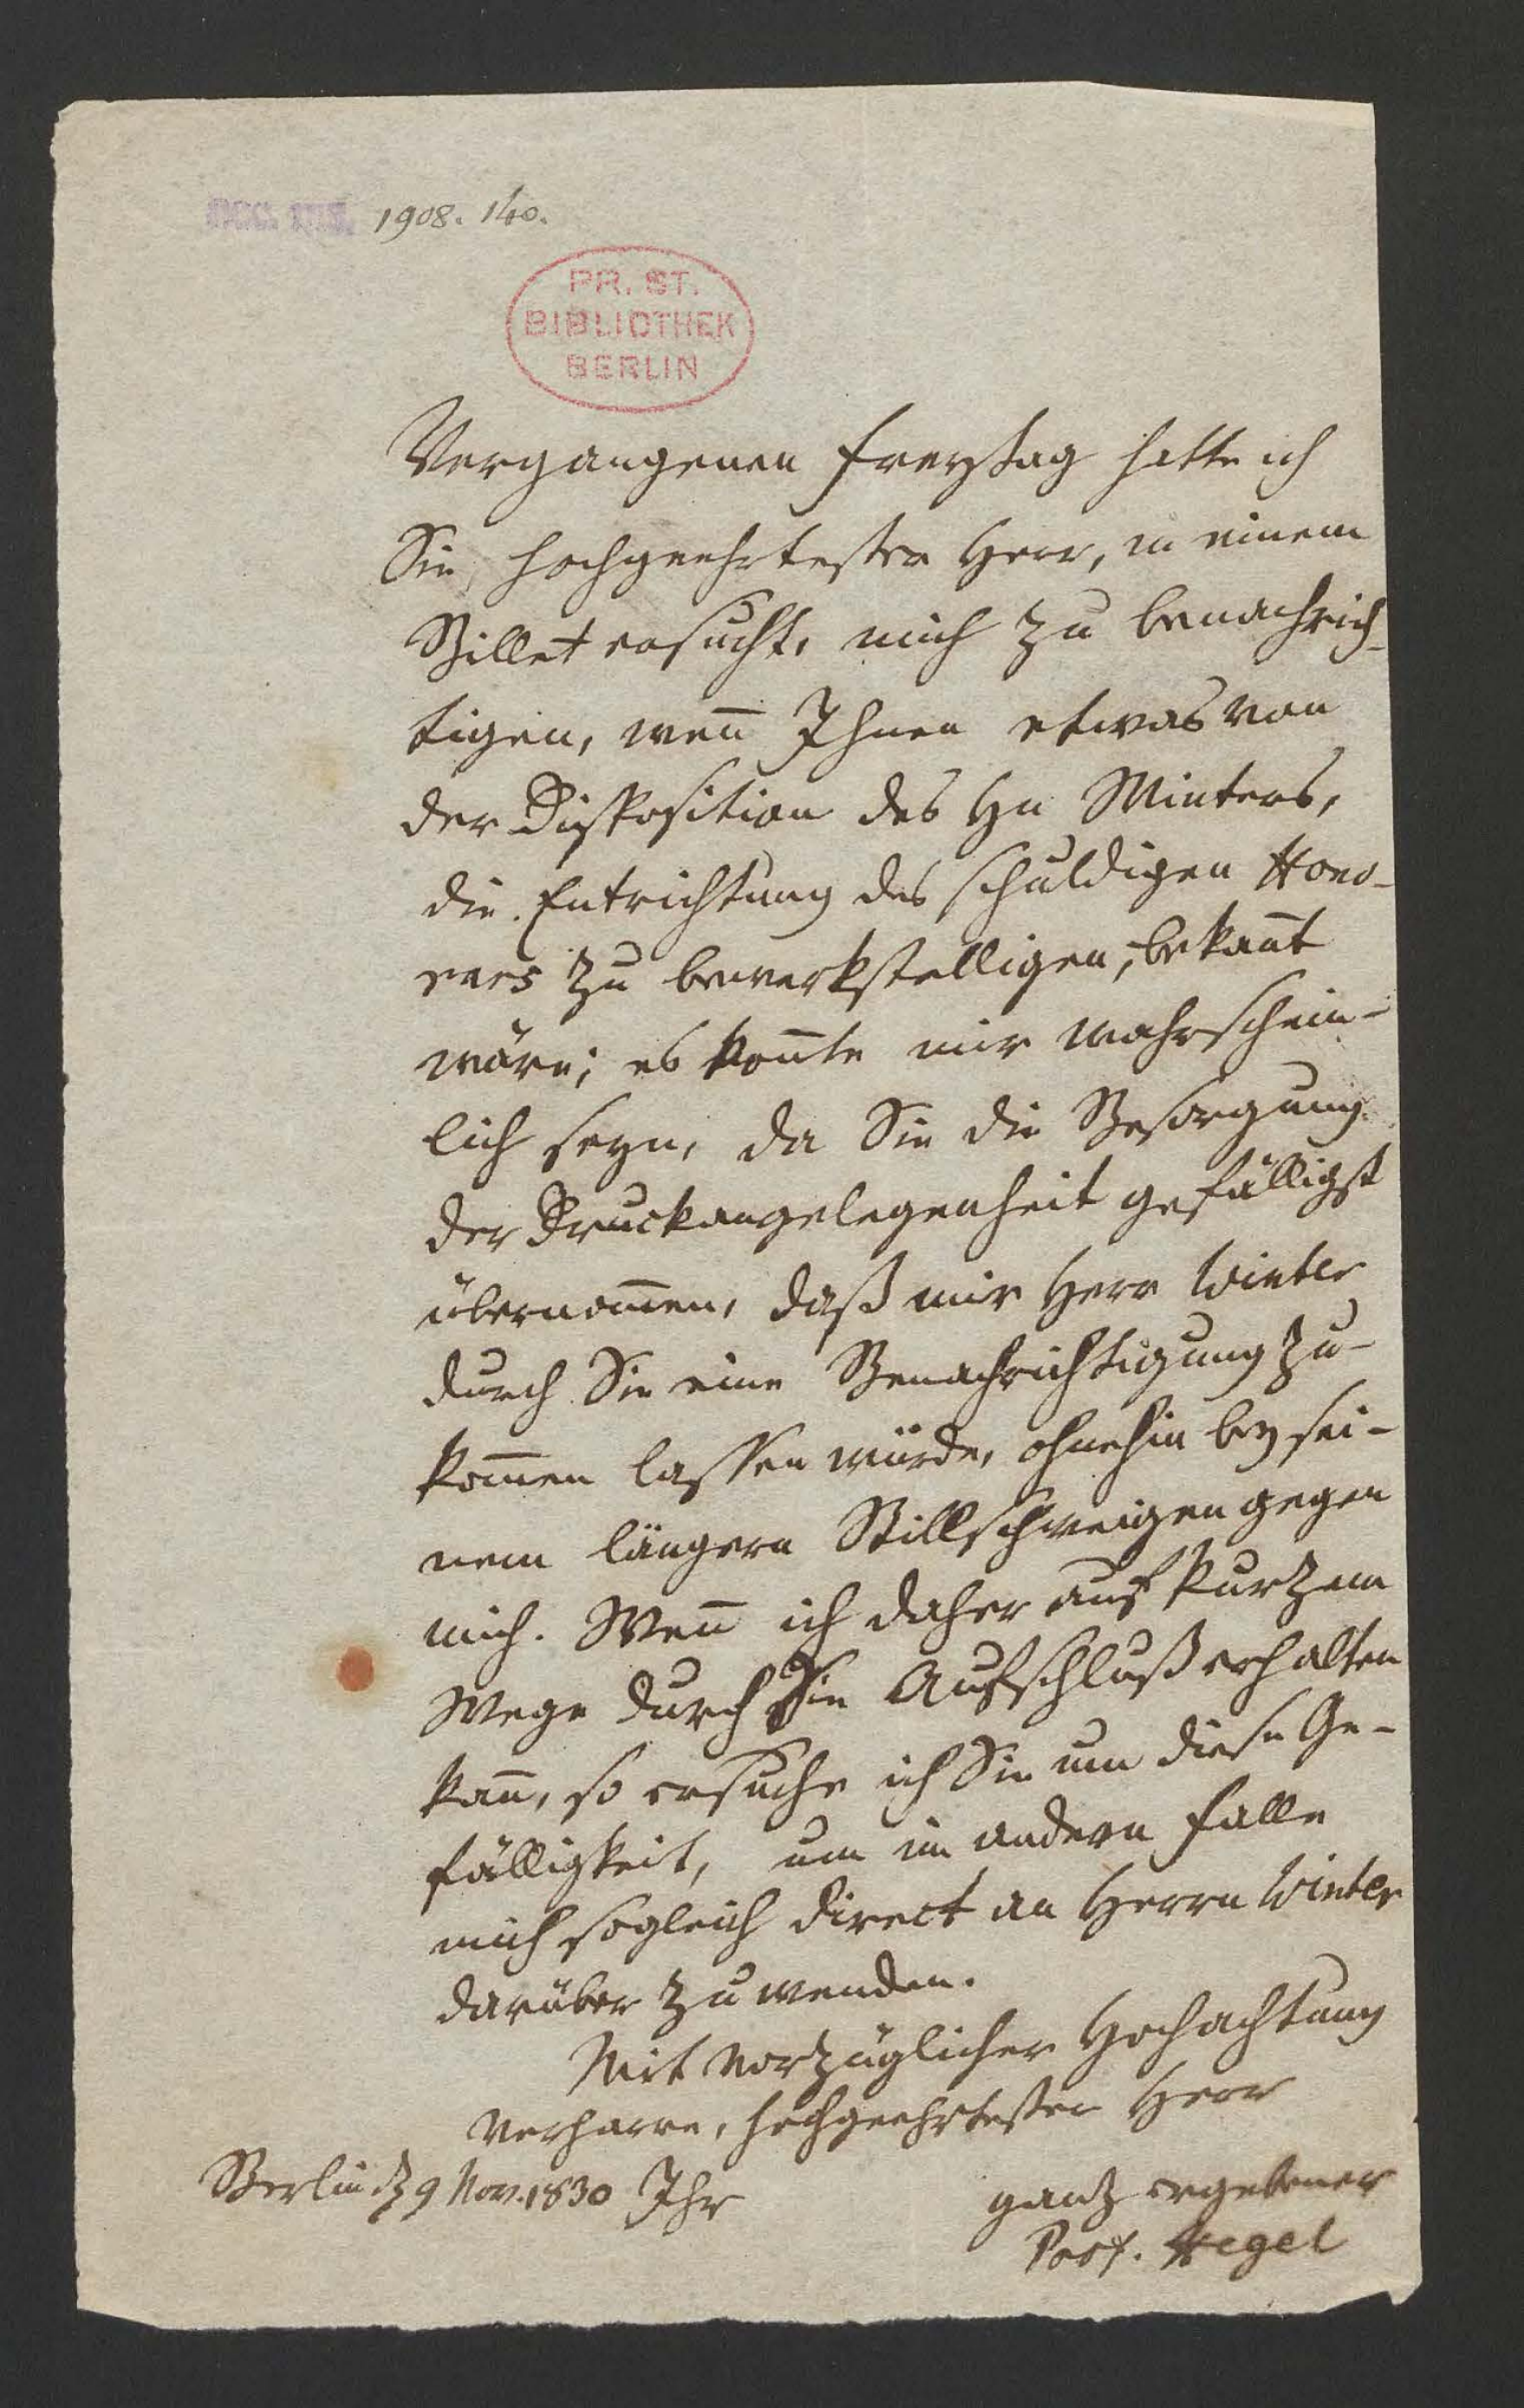 acc. ms. 1908. 140.
PR. ST.
BIBLIOTHEK
BERLIN
Vergangenen Freytag hatte ich
Sie, hochgeehrtester Herr, in einem
Billet ersucht, mich zu benachrich-
tigen, wen̄ Ihnen etwas von
der Disposition des Hn Winters,
die Entrichtung des schuldigen Hono-
rars zu bewerkstelligen, bekan̄t
wäre; es kon̄te mir wahrschein-
lich seyn, da Sie die Besorgung
der Druckangelegenheit gefälligst
übernom̄en, daß mir Herr Winter
durch Sie eine Benachrichtigung zu-
kom̄en lassen würde, ohnehin bey sei-
nem längern Stillschweigen gegen
mich. Wen̄ ich daher auf kurzem
Wege durch Sie Aufschluß erhalten
kan̄, so ersuche ich Sie um diese Ge-
fälligkeit, um im andern Falle
mich sogleich direct an Herrn Winter
darüber zu wenden.
Mit vorzüglicher Hochachtung
verharre, hochgeehrtester Herr
Berlin d 9 Nov. 1830 Ihr
ganz ergebener
Prof. Hegel